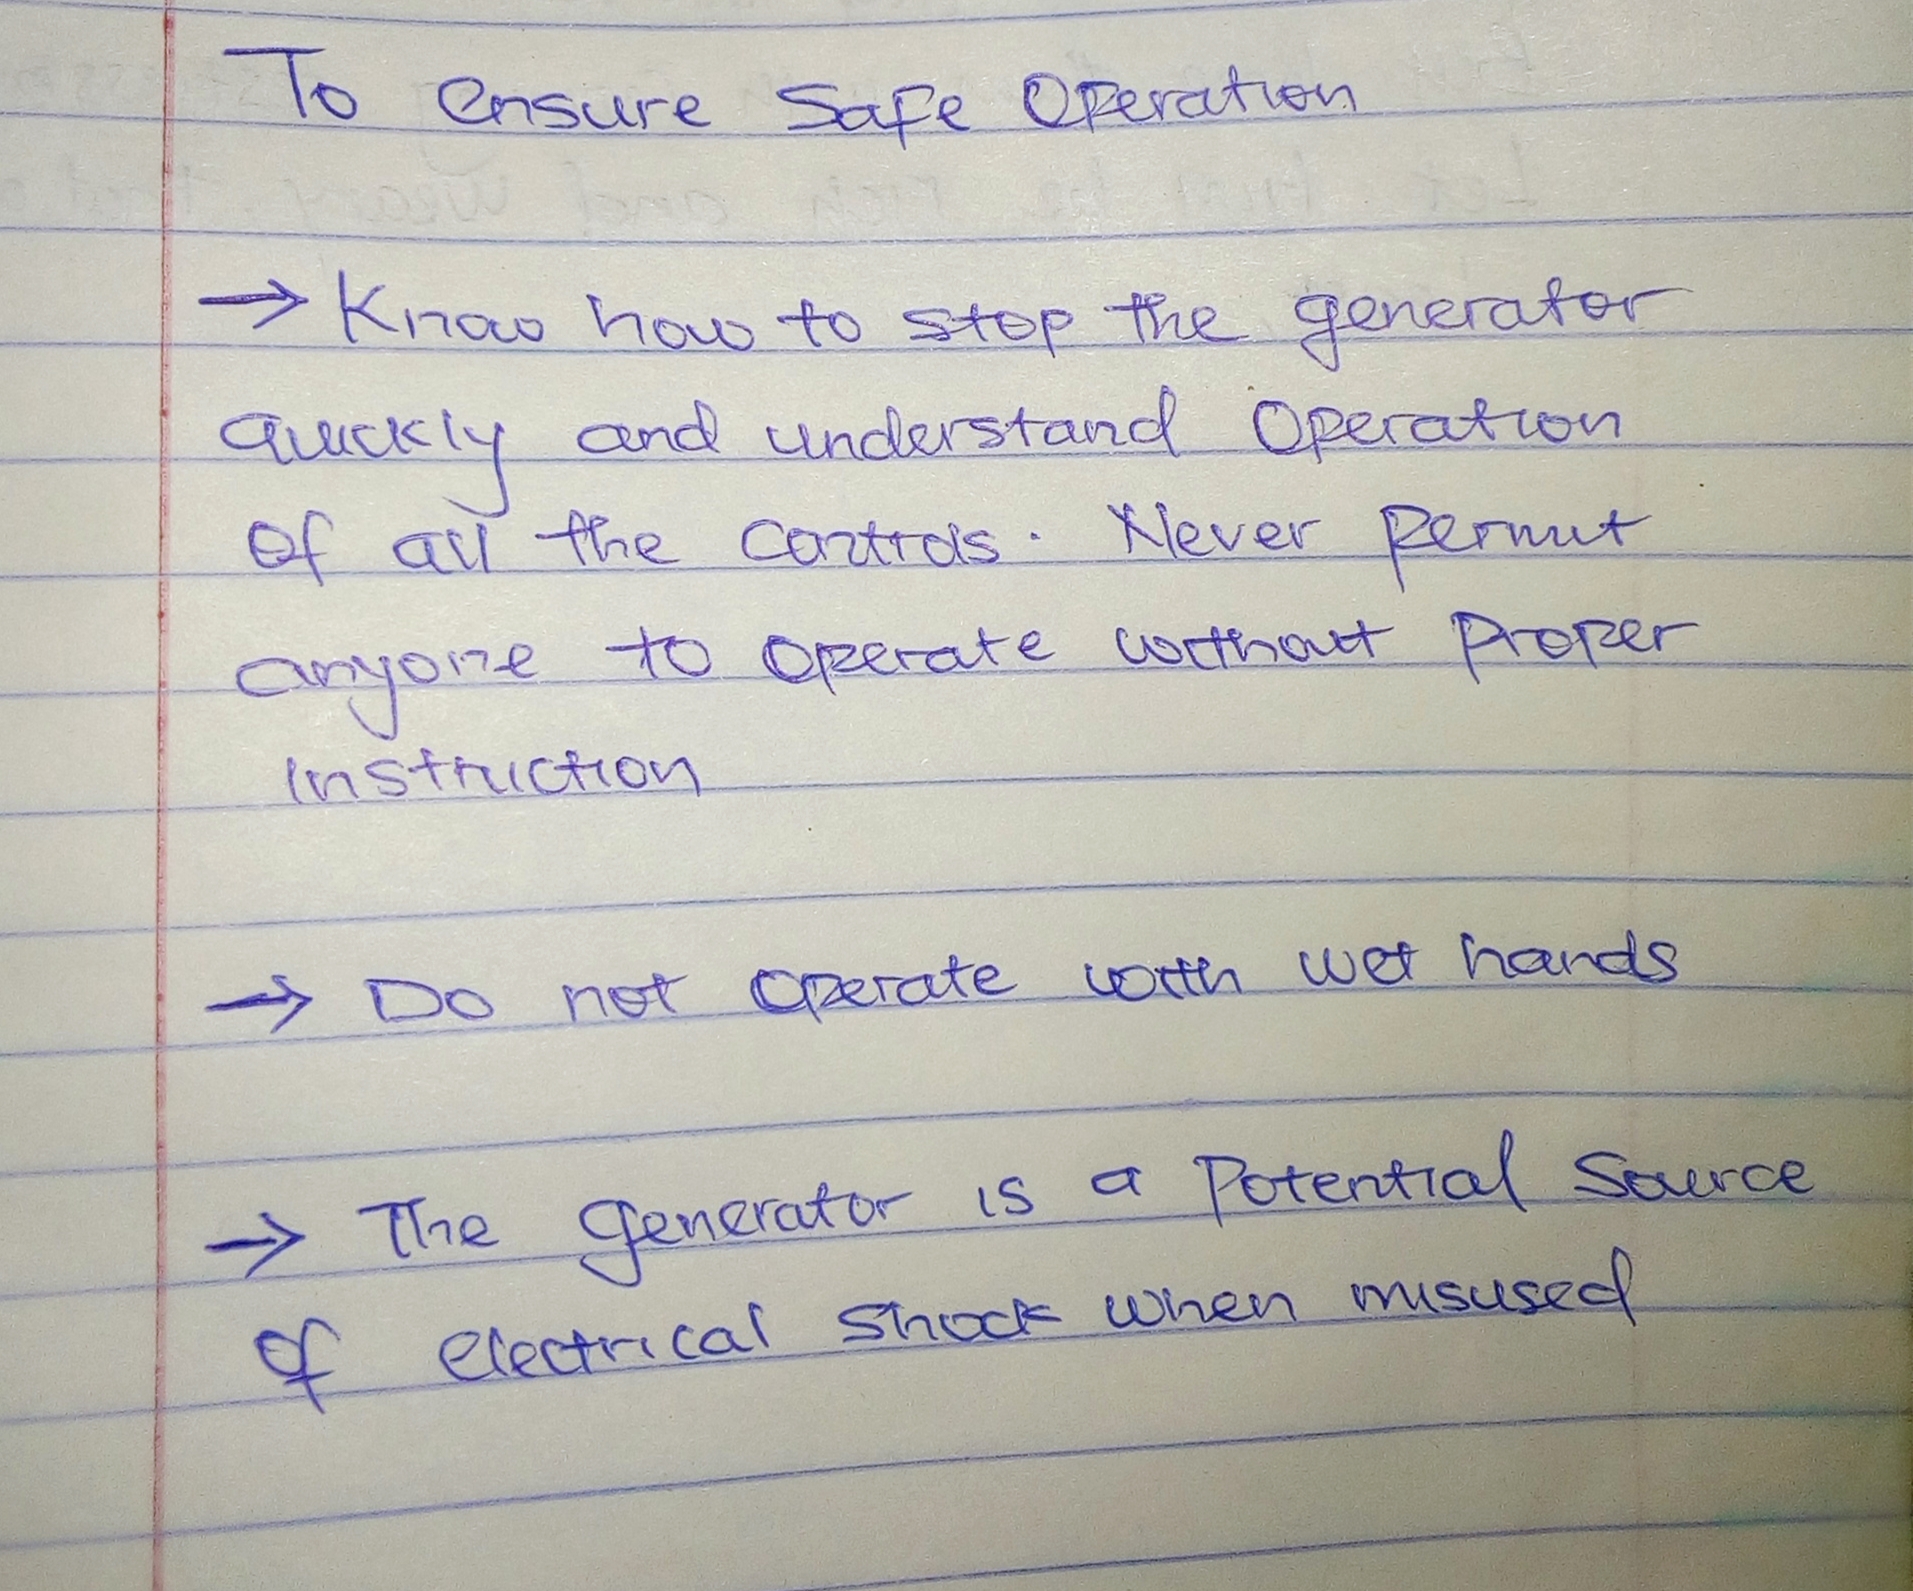 To ensure Safe Operation
→ Know how to stop the generator
quickly and understand Operation
Of all the controls. Never Permit
anyone to operate without Proper
instruction
→ Do not operate with wet hands
→ The generator is a Potential Source
of electrical Shock when misused